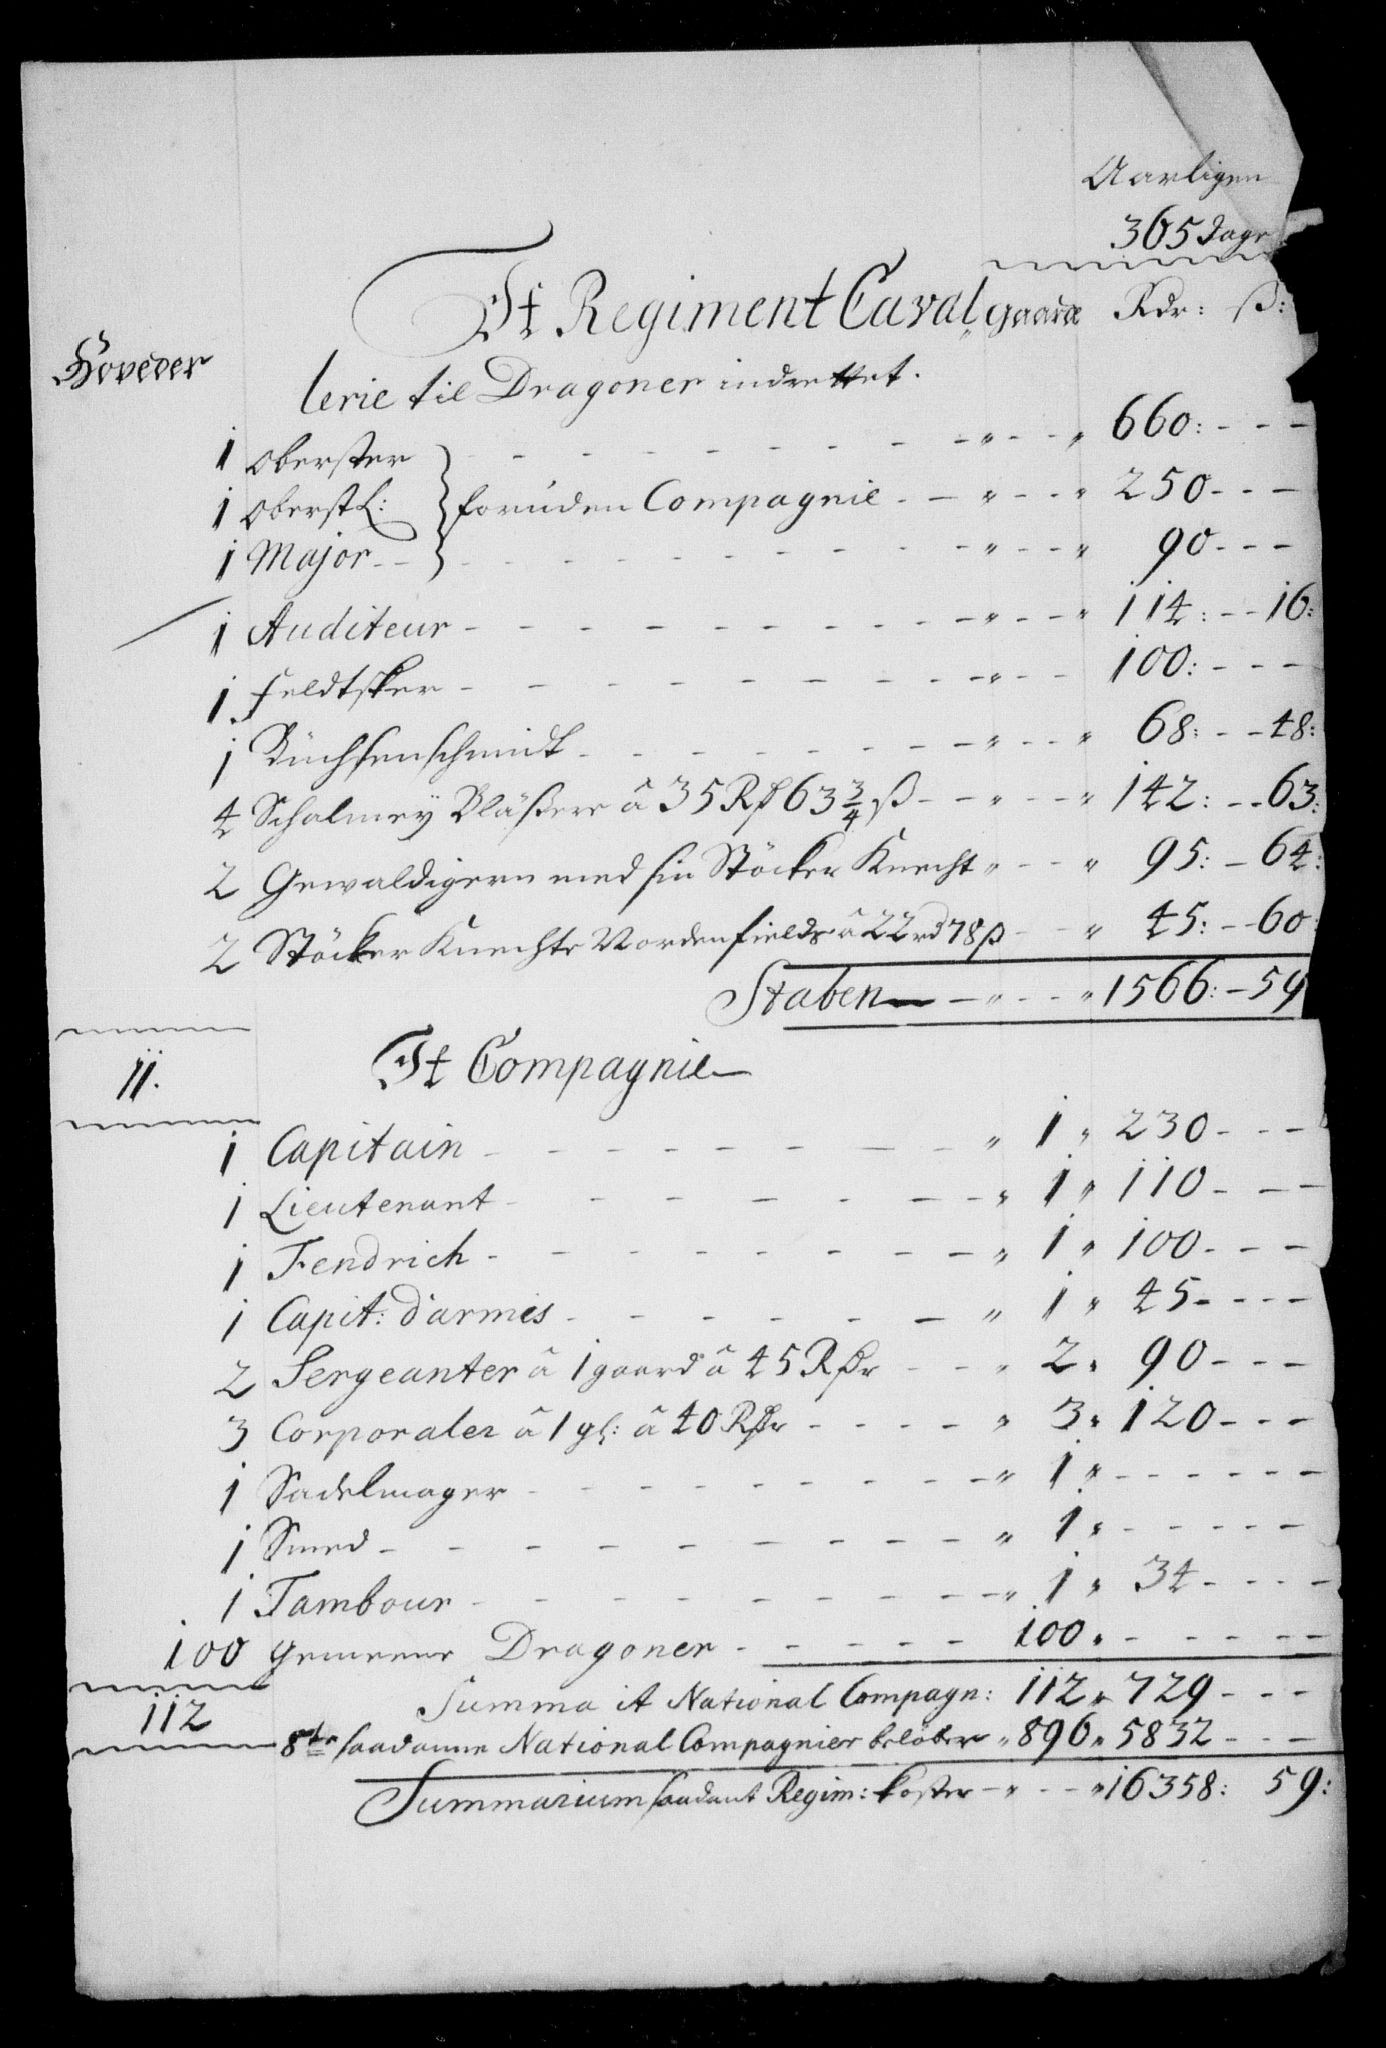 Aarligen
365 Dage
Et Regiment Caval„ gaarde Rdr: ß:
Hoveder
lerie til Dragoner indrettet.
1 Oberster - - - - - - - - „ - - „ 660: - - -
1 Oberstl: foruden Compagnie - - „ - - „ 250 - - -
1 Major - - - - - - - - - „ - - „ 90 - - -
1 Auditeur - - - - - - - - „ - - „ 114: - - 16:
1 Feldtsker - - - - - - - - „ - - 100: - - -
1 Büchsenschmidt - - - - - - „ - - „ 68: - - 48:
4 Schalmey Bläßere â 35 Rd 63 3/4 ß - - „ - - „ 142: - - 63:
2 Gewaldigern med sin Stöcker Knecht „ - - „ 95: - 64:
2 Stöcker Knechte Nordenfields â 22 rd 78 ß - - „ 45: - - 60:
Staben - „ - - „ 1566: - 59
11. Et Compagnie
1 Capitain - - - - - - - „ 1 „ 230 - - -
1 Lieutenant - - - - - - - „ 1 „ 110 - - -
1 Fendrich - - - - - - - „ 1 „ 100 - - -
1 Capit: d'armes - - - - - - „ 1 „ 45 - - - -
2 Sergeanter â 1 gaard â 45 Rdr - - „ 2 „ 90 - - -
3 Corporaler â 1 g: â 40 Rdr - - - - „ 3 „ 120 - - -
1 Sadelmager - - - - - - - „ 1 „ - - - - - -
1 Smed - - - - - - - - „ 1 „ - - - - -
1 Tambour - - - - - - - - „ 1 „ 34 - - - -
100 Gemeene Dragoner - - - - - 100 „ - - - - -
Summa it National Compagn: 112 „ 729 - - -
112
8te saadanne National Compagnier belöber „ 896 „ 5832 - - -
Summarium saadant Regim: koster - „ - - „ 16358: 59: